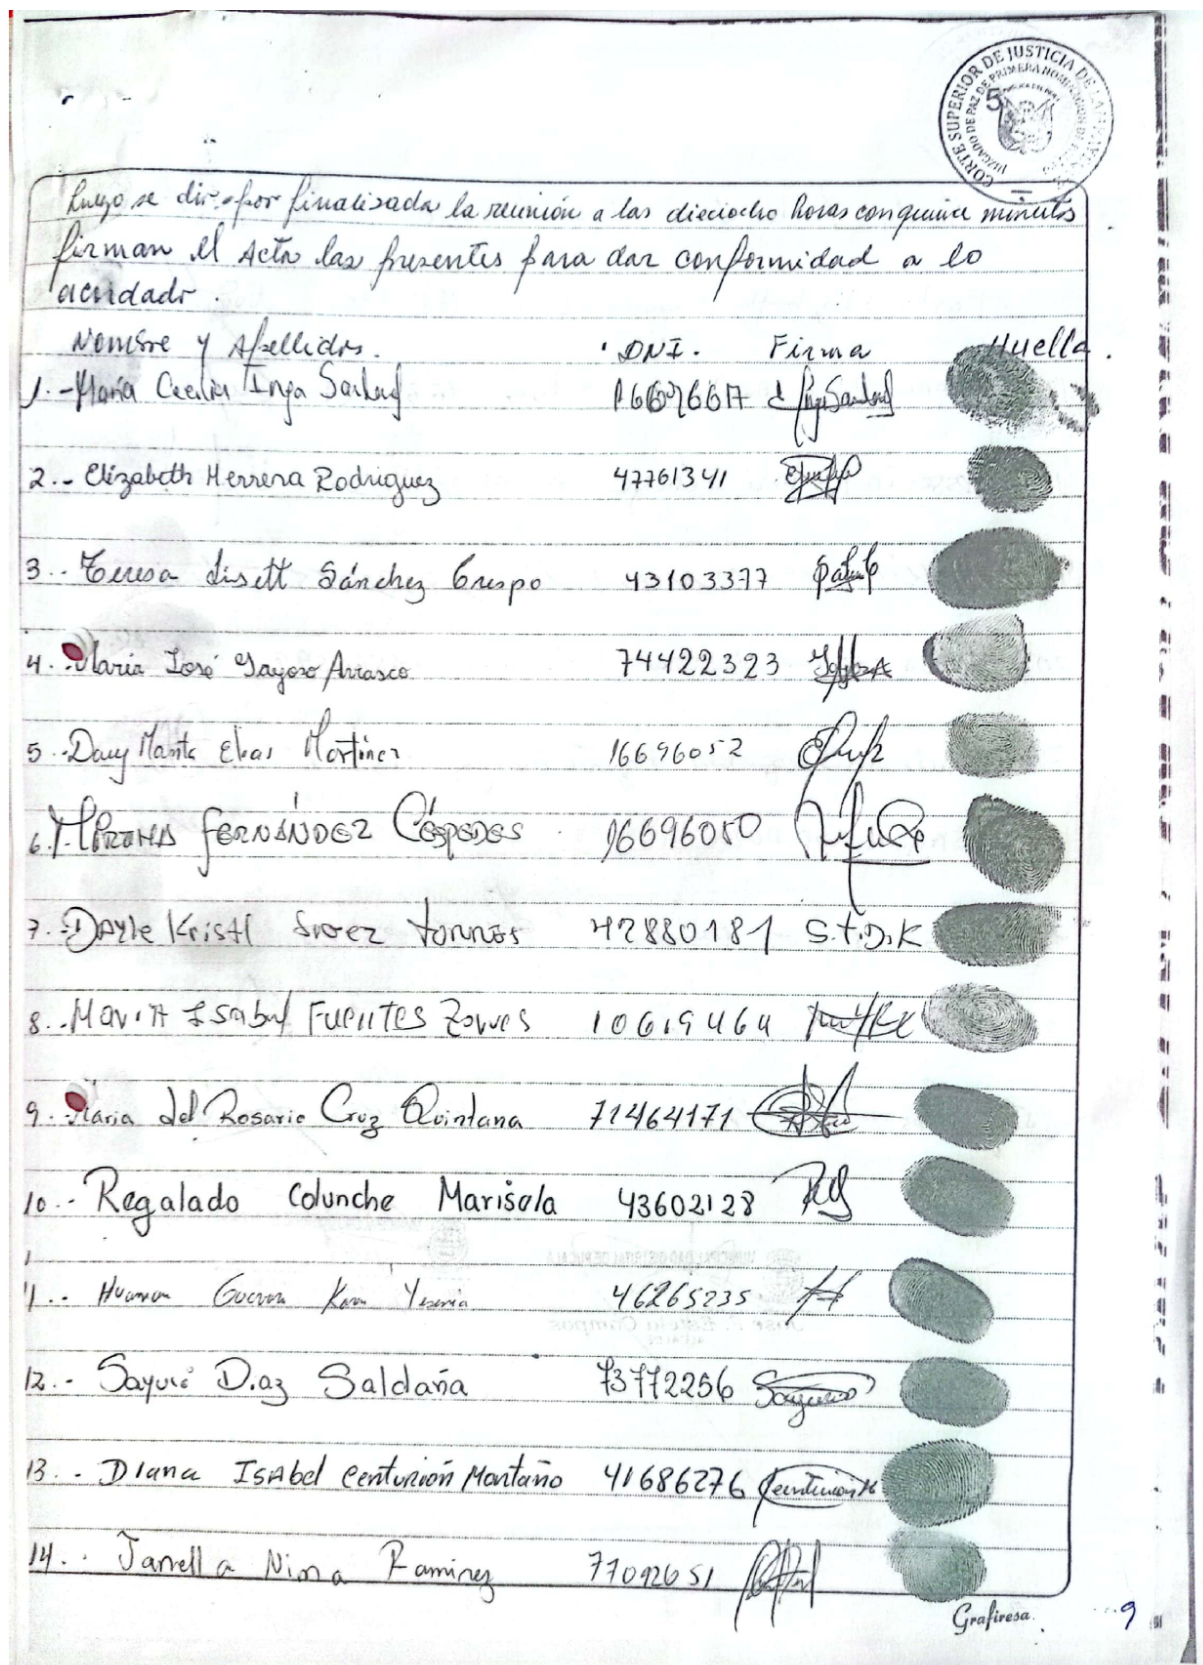 CORTE SUPERIOR DE JUSTICIA DE LAMBAYEQUE
JUZGADO DE PAZ DE PRIMERA NOMINACION DE
5
Luego se dio por finalizada la reunión a las dieciocho horas con quince minutos
firman el Acta las presentes para dar conformidad a lo
acordado.
Nombre y Apellidos. DNI. Firma Huella.
1.- María Cecilia Inga
2.- Elizabeth Herrera Rodriguez 47761341
3.- Teresa Lisett Sánchez Crespo 43103377
4.- María José Gayoso Arrasco 74422323
5.- Elias Martinez 16696052
6.- FERNÁNDEZ CÉSPEDES 16696050
7.- Dayle Kristl torres 42880181 S.t.D.K
8.- Maria Isabel FUENTES 10619464
9.- Maria del Rosario Cruz Quintana 71464171
10.- Regalado Colunche Marisela 43602128
11.- Huaman Yesenia 46265235
12.- Sayuri Diaz Saldaña 73772256
13.- Diana Isabel Centurión Montaño 41686276 Centurion M
14.- Nima Ramirez 77092651
Grafiresa.
9